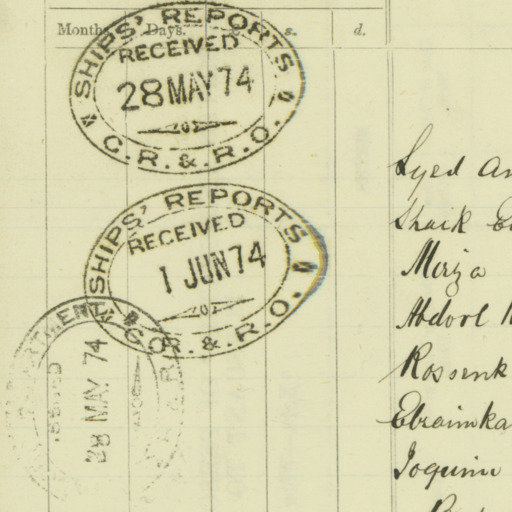 Months. Days. £ s. d.
SHIPS' REPORTS
RECEIVED
28 MAY 74
C.R. & R.O.
SHIPS' REPORTS
RECEIVED
1 JUN 74
C.R. & R.O.
28 MAY 74
Syed
Shaik
Mirza
Abdool
Rossenk
Ebraimka
Joquim